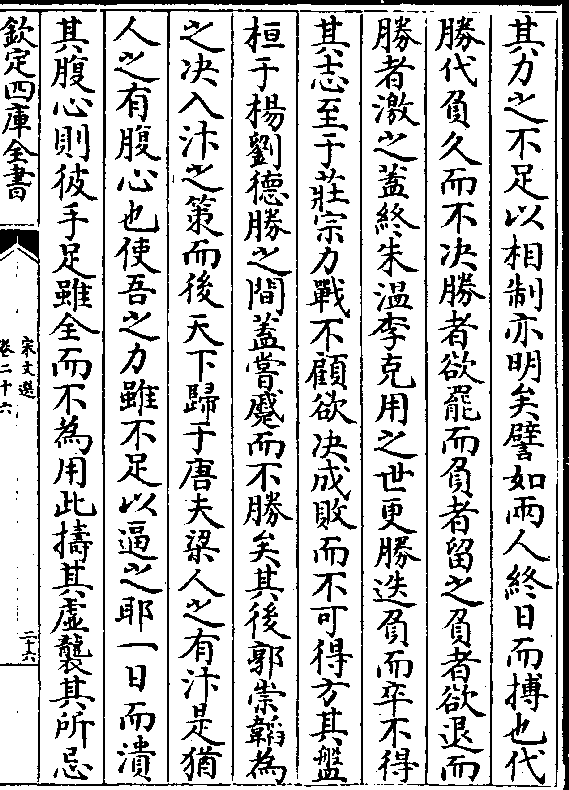 其力之不足以相制亦明矣譬如兩人終日而搏也代
勝代負久而不决勝者欲罷而負者留之負者欲退而
勝者激之蓋終朱溫李克用之世更勝迭負而卒不得
其志至于莊宗力戰不顧欲决成敗而不可得方其盤
桓于楊劉德勝之間蓋嘗蹙而不勝矣其後郭崇韜為
之决入汴之策而後天下歸于唐夫梁人之有汴是猶
人之有腹心也使吾之力雖不足以逼之耶一日而潰
其腹心則彼手足雖全而不為用此擣其虛襲其所忌
欽定四庫全書
宋文選
卷二十六
二十六